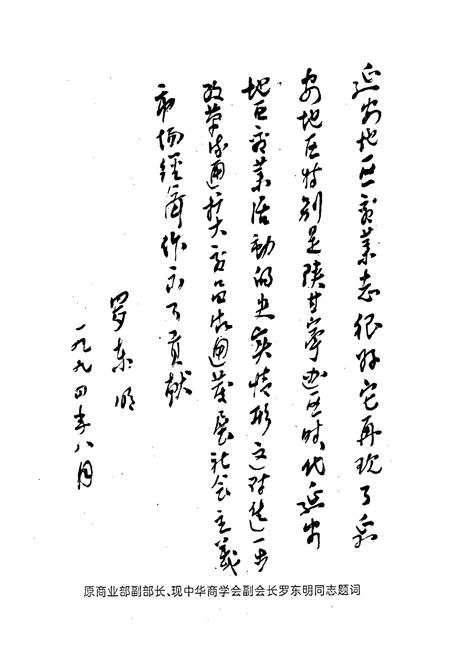 延安地区商业志很好它再现了延
安地区特别是陕甘宁边区时代延安
地区商业活动的史实情形这对进一步
改革流通扩大商品流通发展社会主义
市场经济作出了贡献
罗东明
一九九四年八月
原商业部副部长、现中华商学会副会长罗东明同志题词